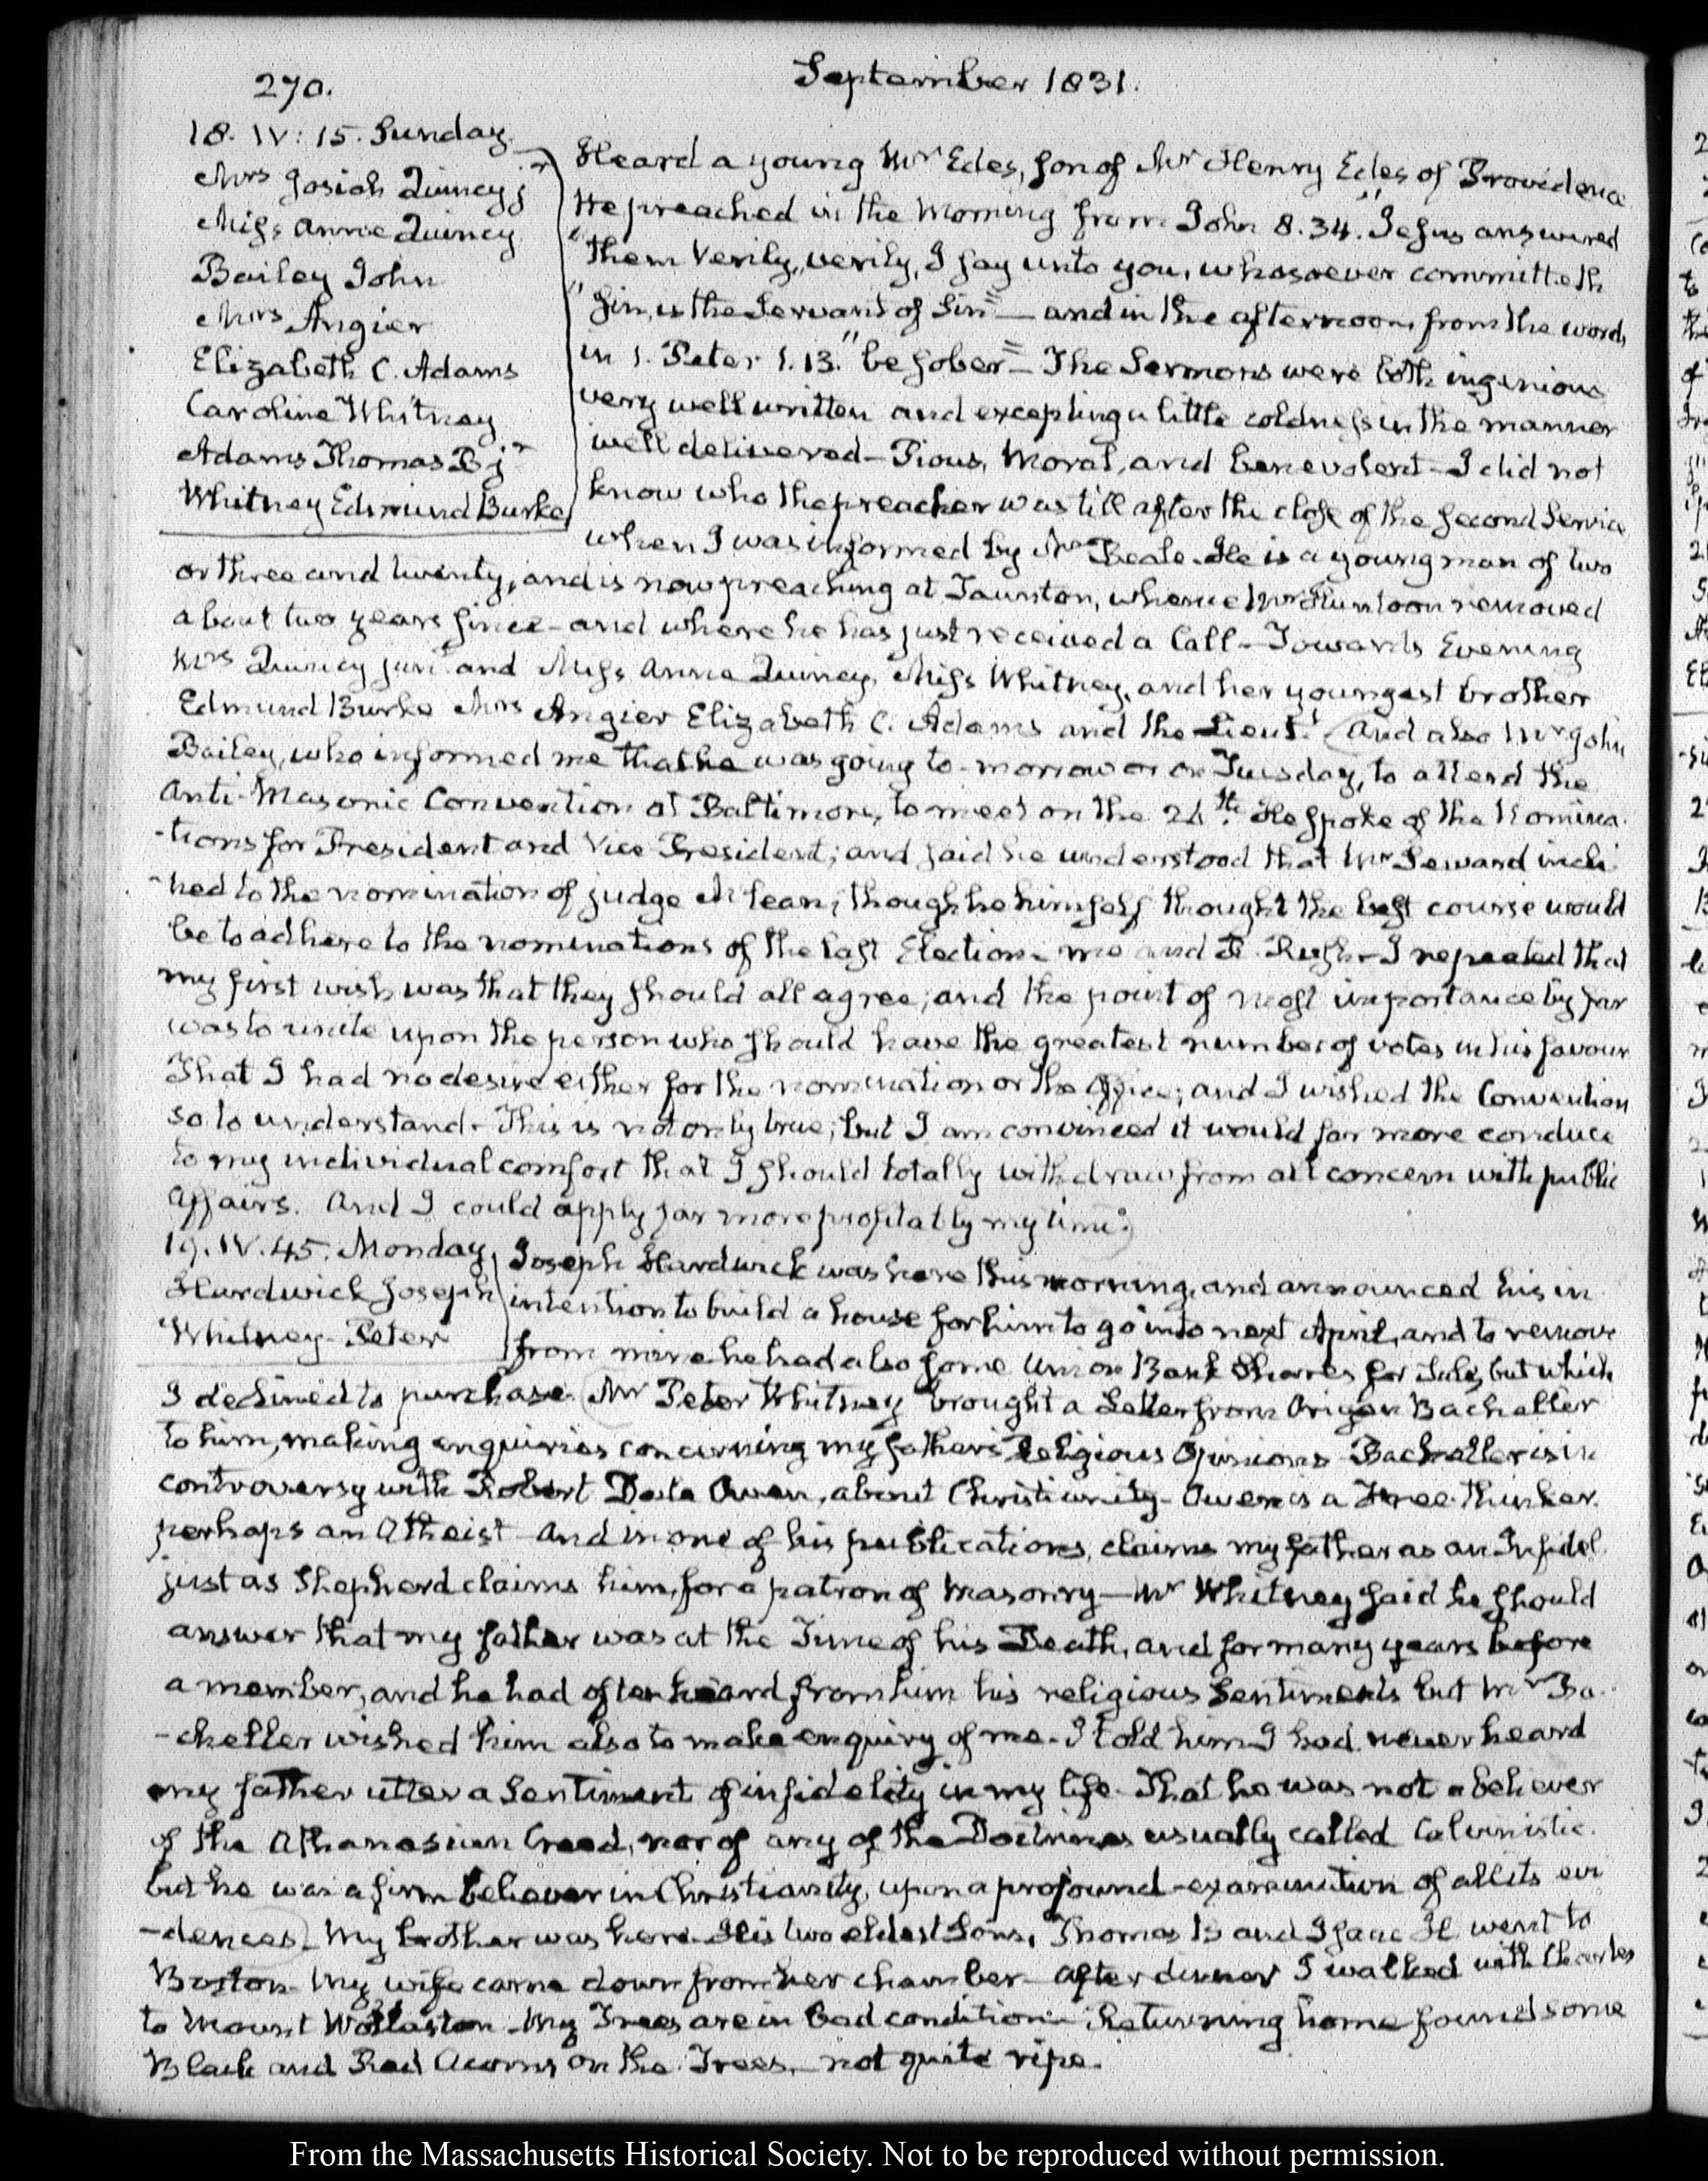 270.
September 1831.
18. IV: 15. Sunday
Mrs Josiah Quincy jr
Miss Anne Quincy
Bailey John
Mrs Angier
Elizabeth C. Adams
Caroline Whitney
Adams Thomas B jr
Whitney Edmund Burke
Heard a young Mr Edes, son of Mr Henry Edes of Providence
He preached in the morning from John 8.34. "Jesus answered
"them Verily, verily, I say unto you, whosoever committeth
"sin, is the Servant of Sin" — and in the afternoon, from the words
in 1. Peter 1.13. "be sober" — The Sermons were both ingenious
very well written and excepting a little coldness in the manner
well delivered — Pious, moral, and benevolent — I did not
know who the preacher was till after the close of the second Service
when I was informed by Mr Beale. He is a young man of two
or three and twenty, and is now preaching at Taunton, whence Mr Huntoon removed
about two years since — and where he has just received a Call — Towards Evening
Mrs Quincy junr and Miss Anne Quincy, Miss Whitney, and her youngest brother
Edmund Burke Mrs Angier Elizabeth C. Adams and the Lieutt. And also Mr John
Bailey, who informed me that he was going to-morrow or on Tuesday, to attend the
Anti-Masonic Convention at Baltimore, to meet on the 26th. He spoke of the Nomina-
-tions for President and Vice President; and said he understood that Mr Seward incli-
-ned to the nomination of judge McLean; though he himself thought the best course would
be to adhere to the nominations of the last Election — me and R. Rush — I repeated that
my first wish was that they should all agree; and the point of most importance by far
was to unite upon the person who should have the greatest number of votes in his favour
That I had no desire either for the nomination or the Office; and I wished the Convention
so to understand — This is not only true; but I am convinced it would far more conduce
to my individual comfort that I should totally withdraw from all concern with public
Affairs. And I could apply far more profitably my time.
19. IV. 45. Monday
Hardwick Joseph
Whitney Peter
Joseph Hardwick was here this morning, and announced his in
intention to build a house for him to go into next April, and to remove
from mine he had also some Union Bank Shares for Sale, but which
I declined to purchase. Mr Peter Whitney brought a Letter from Origen Bacheller
to him, making enquiries concerning my father's Religious Opinions — Bacheller is in
controversy with Robert Dale Owen, about Christianity — Owen is a Free-thinker
perhaps an Atheist — and in one of his publications, claims my father as an Infidel
just as Shepherd claims him, for a patron of Masonry — Mr Whitney said he should
answer that my father was at the Time of his Death, and for many years before
a member, and he had often heard from him his religious Sentiments but Mr Ba-
-cheller wished him also to make enquiry of me — I told him I had never heard
my father utter a Sentiment of infidelity in my life. That he was not a believer
of the Athanasian Creed, nor of any of the Doctrines usually called Calvinistic.
but he was a firm believer in Christianity, upon a profound examination of all its evi
-dences — My brother was here. His two eldest Sons, Thomas B and Isaac H went to
Boston. My wife came down from her chamber — After dinner I walked with Charles
to Mount Wollaston — My Trees are in bad condition — Returning home found some
Black and Red Acorns on the Trees, — not quite ripe.
From the Massachusetts Historical Society. Not to be reproduced without permission.